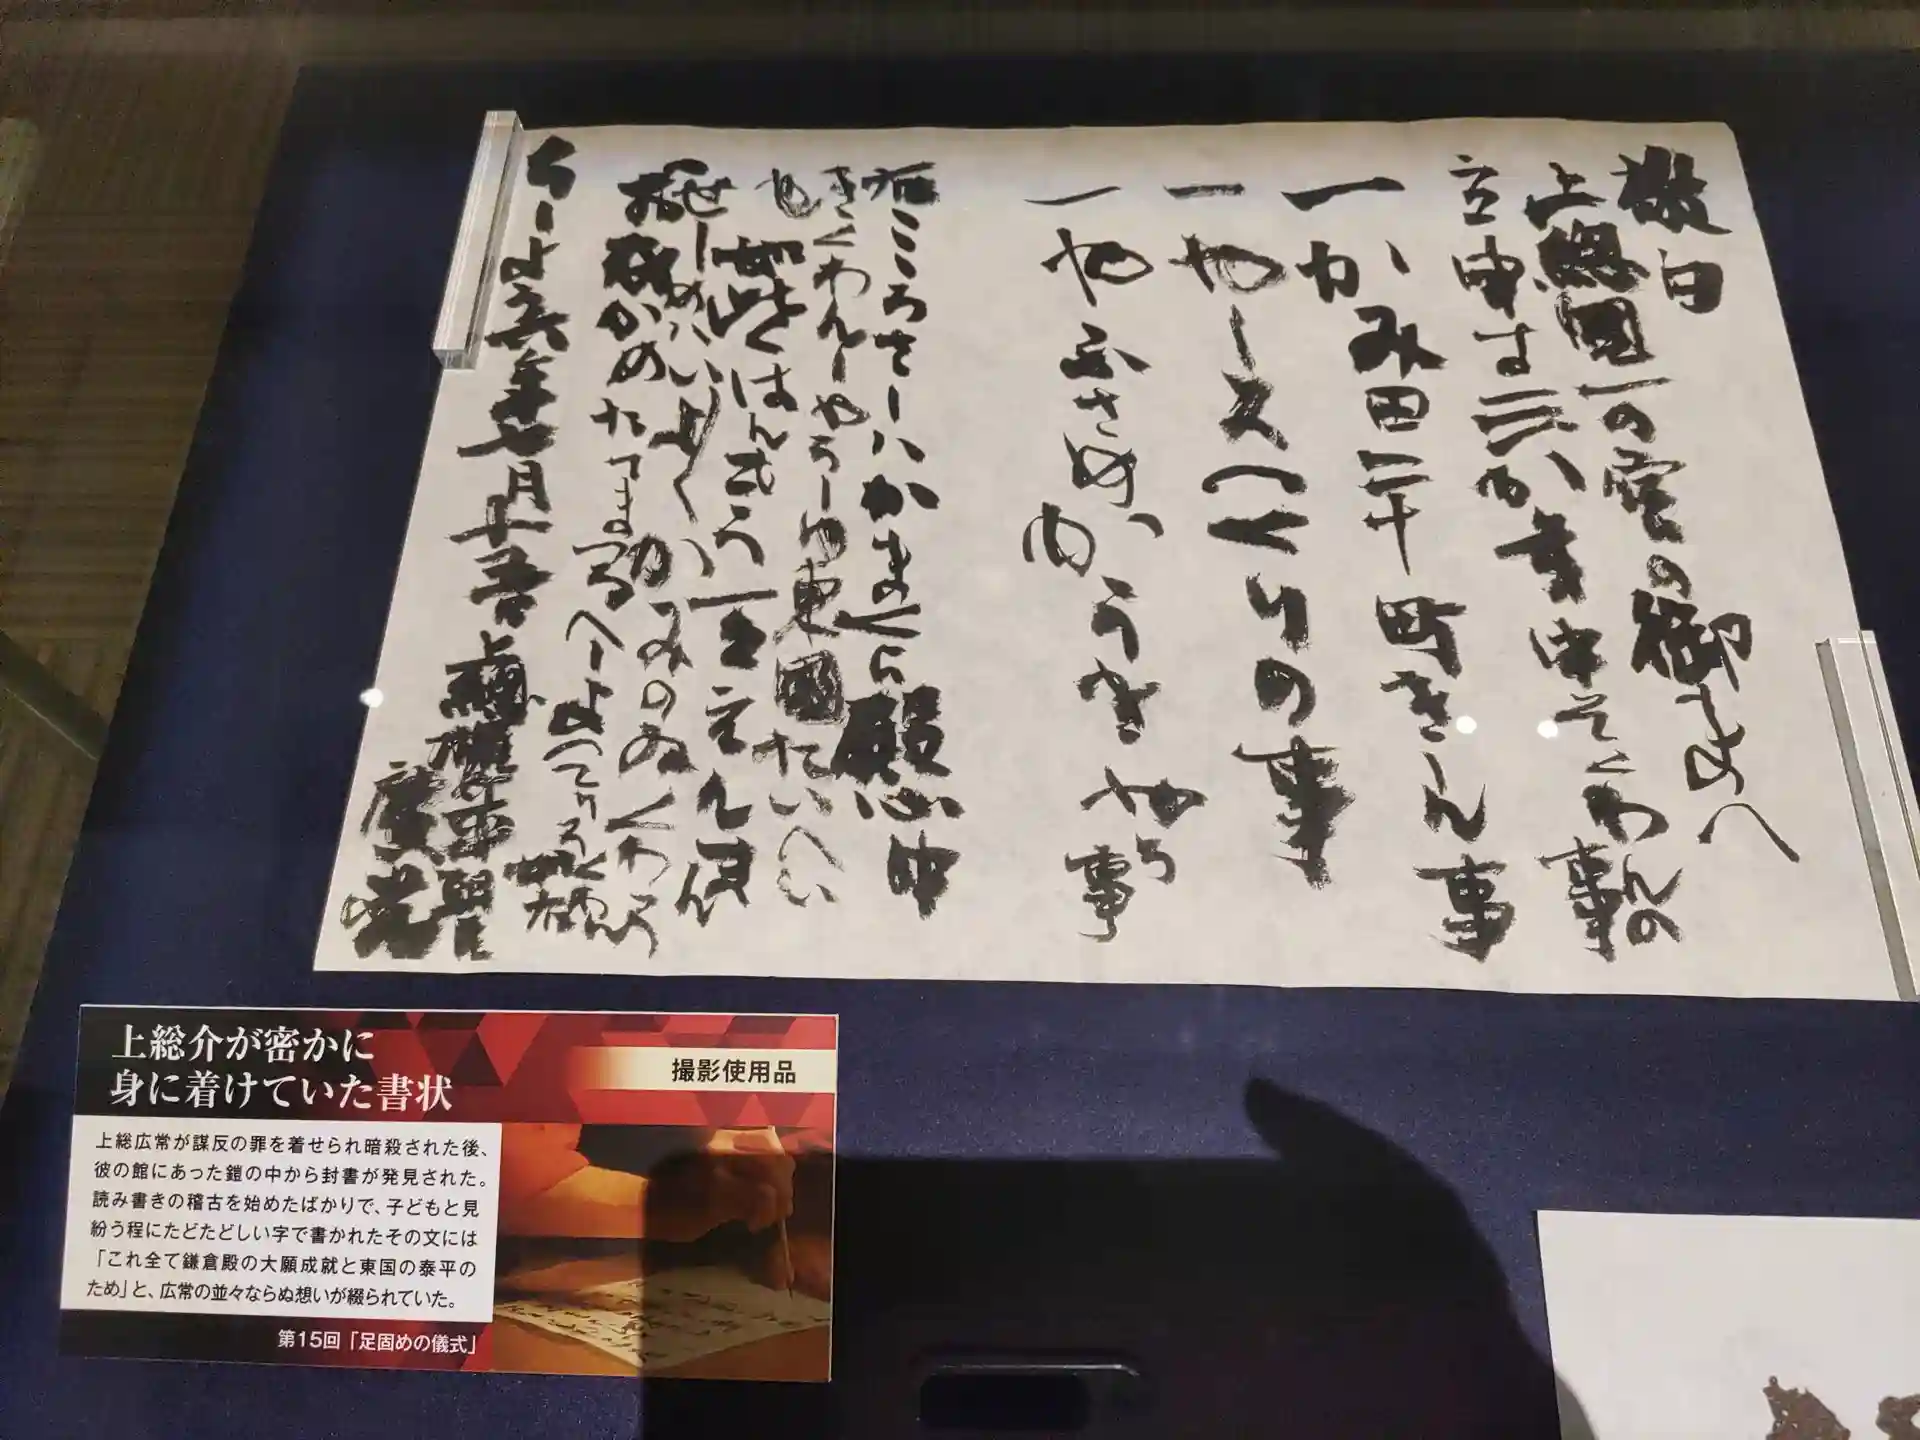 敬白
上總國一の宮の御まへ
立申す三か年中そくわんの事
一かみ田二十町きしん事
一やしろつくりの事
一やふさめ
右こころさしハかまくら殿心中
きくわんしやうしゆ東國たいへい
也
如此くはんもう一
せしめハいよ〱かみのゐくわう
あかめたてまつるへし
よつて
ちしよう六年七月
上總權
廣常
上総介が密かに
身に着けていた書状
撮影使用品
上総広常が謀反の罪を着せられ暗殺された後、
彼の館にあった鎧の中から封書が発見された。
読み書きの稽古を始めたばかりで、子どもと見
紛う程にたどたどしい字で書かれたその文には
「これ全て鎌倉殿の大願成就と東国の泰平の
ため」と、広常の並々ならぬ想いが綴られていた。
第15回「足固めの儀式」